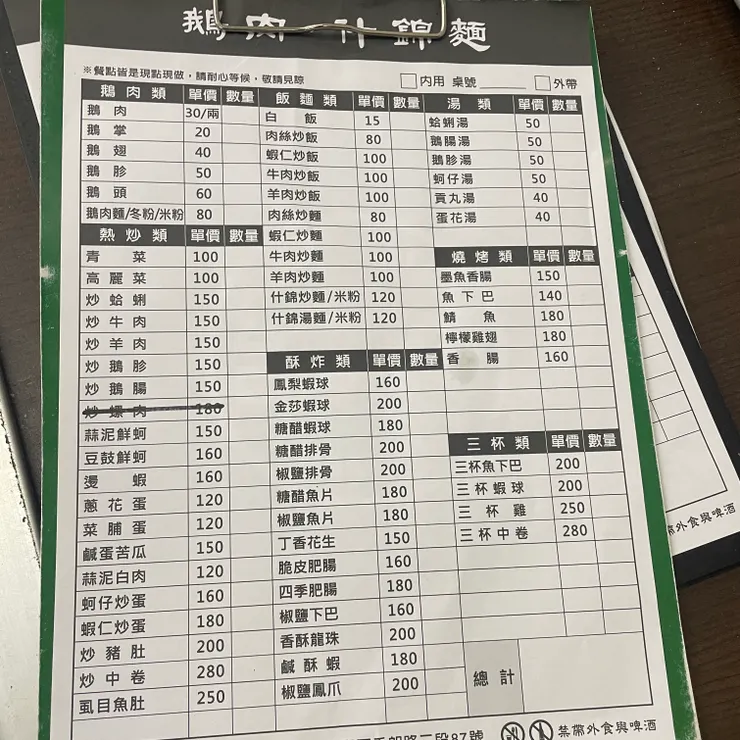 鵝肉 什錦麵
※餐點皆是現點現做，請耐心等候，敬請見諒
內用 桌號
外帶
鵝肉類 單價 數量
鵝肉 30/兩
鵝掌 20
鵝翅 40
鵝胗 50
鵝頭 60
鵝肉麵/冬粉/米粉 80
熱炒類 單價 數量
青菜 100
高麗菜 100
炒蛤蜊 150
炒牛肉 150
炒羊肉 150
炒鵝胗 150
炒鵝腸 150
炒螺肉 180
蒜泥鮮蚵 150
豆鼓鮮蚵 160
燙蝦 160
蔥花蛋 120
菜脯蛋 120
鹹蛋苦瓜 150
蒜泥白肉 120
蚵仔炒蛋 160
蝦仁炒蛋 180
炒豬肚 200
炒中卷 280
虱目魚肚 250
飯麵類 單價 數量
白飯 15
肉絲炒飯 80
蝦仁炒飯 100
牛肉炒飯 100
羊肉炒飯 100
肉絲炒麵 80
蝦仁炒麵 100
牛肉炒麵 100
羊肉炒麵 100
什錦炒麵/米粉 120
什錦湯麵/米粉 120
酥炸類 單價 數量
鳳梨蝦球 160
金莎蝦球 200
糖醋蝦球 180
糖醋排骨 200
椒鹽排骨 200
糖醋魚片 180
椒鹽魚片 180
丁香花生 150
脆皮肥腸 160
四季肥腸 180
椒鹽下巴 160
香酥龍珠 200
鹹酥蝦 180
椒鹽鳳爪 200
湯類 單價 數量
蛤蜊湯 50
鵝腸湯 50
鵝胗湯 50
蚵仔湯 50
貢丸湯 40
蛋花湯 40
燒烤類 單價 數量
墨魚香腸 150
魚下巴 140
鯖魚 180
檸檬雞翅 180
香腸 160
三杯類 單價 數量
三杯魚下巴 200
三杯蝦球 200
三杯雞 250
三杯中卷 280
總計
路二段87號
禁帶外食與啤酒
帶外食與啤酒